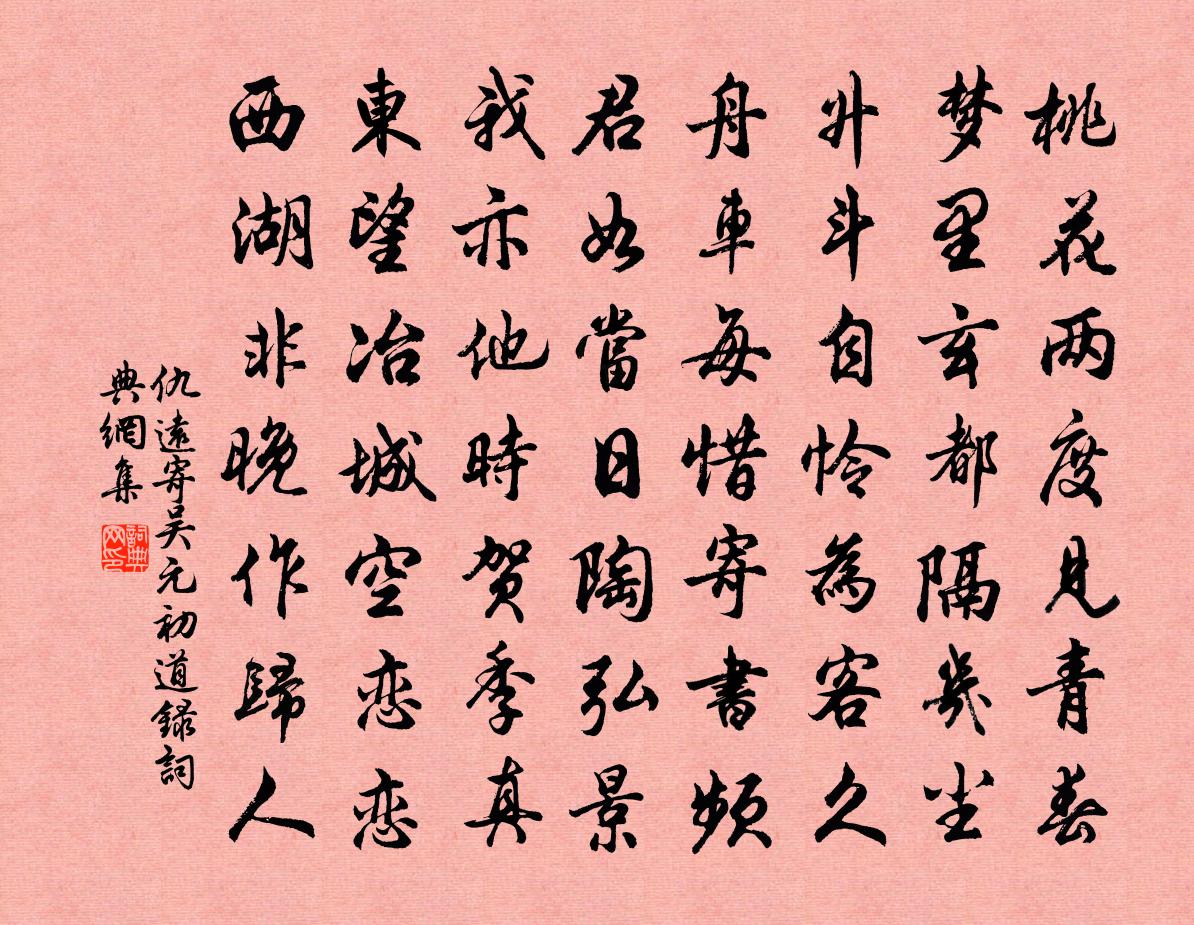 桃花两度見青春
梦里玄都隔幾尘
升斗自怜為客久
舟車每惜寄書頻
君如當日陶弘景
我亦他時贺季真
東望冶城空恋恋
西湖非晚作歸人
仇遠寄吴元初道録詞
典網集
詞典
网印